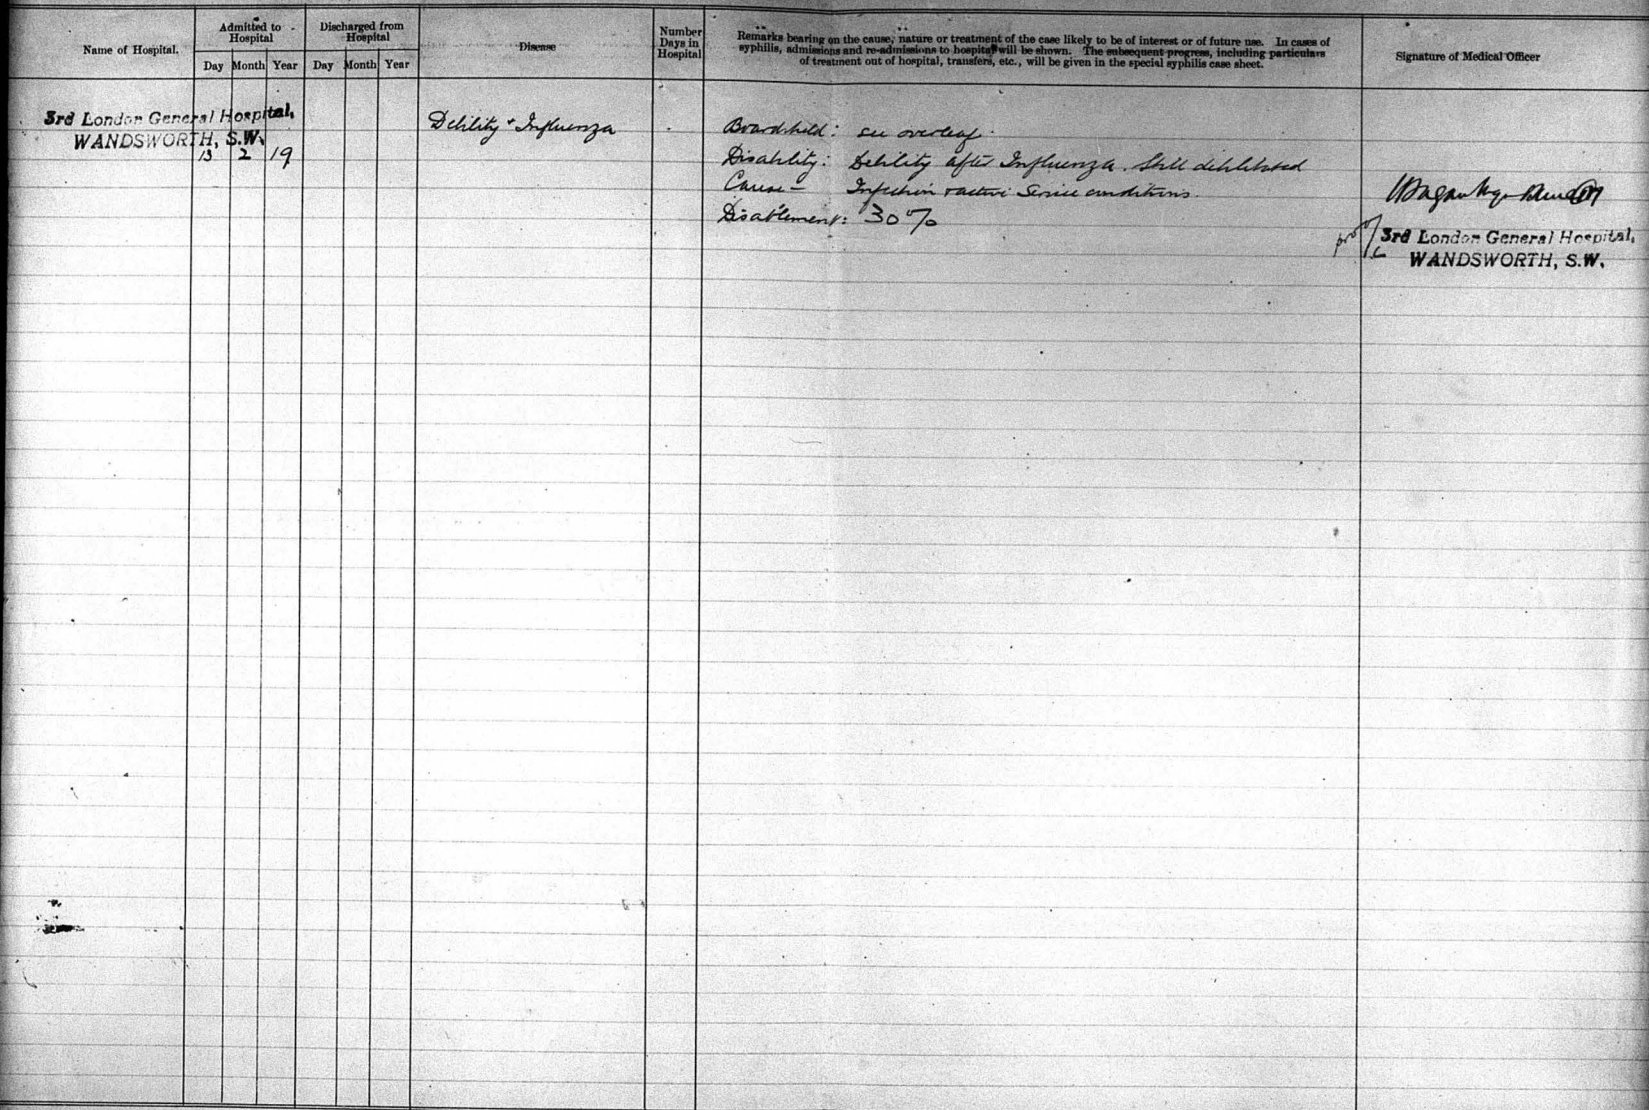 Name of Hospital.
Admitted to Hospital
Day Month Year
Discharged from Hospital
Day Month Year
Disease
Number Days in Hospital
Remarks bearing on the cause, nature or treatment of the case likely to be of interest or of future use. In cases of
syphilis, admissions and re-admissions to hospital will be shown. The subsequent progress, including particulars
of treatment out of hospital, transfers, etc., will be given in the special syphilis case sheet.
Signature of Medical Officer
3rd London General Hospital,
WANDSWORTH, S.W.
13 2 19
Debility + Influenza
Board held: see overleaf.
Disability: Debility after Influenza. Still debilitated
Cause – Infection + active Service conditions.
Disablement: 30%
3rd London General Hospital,
WANDSWORTH, S.W.